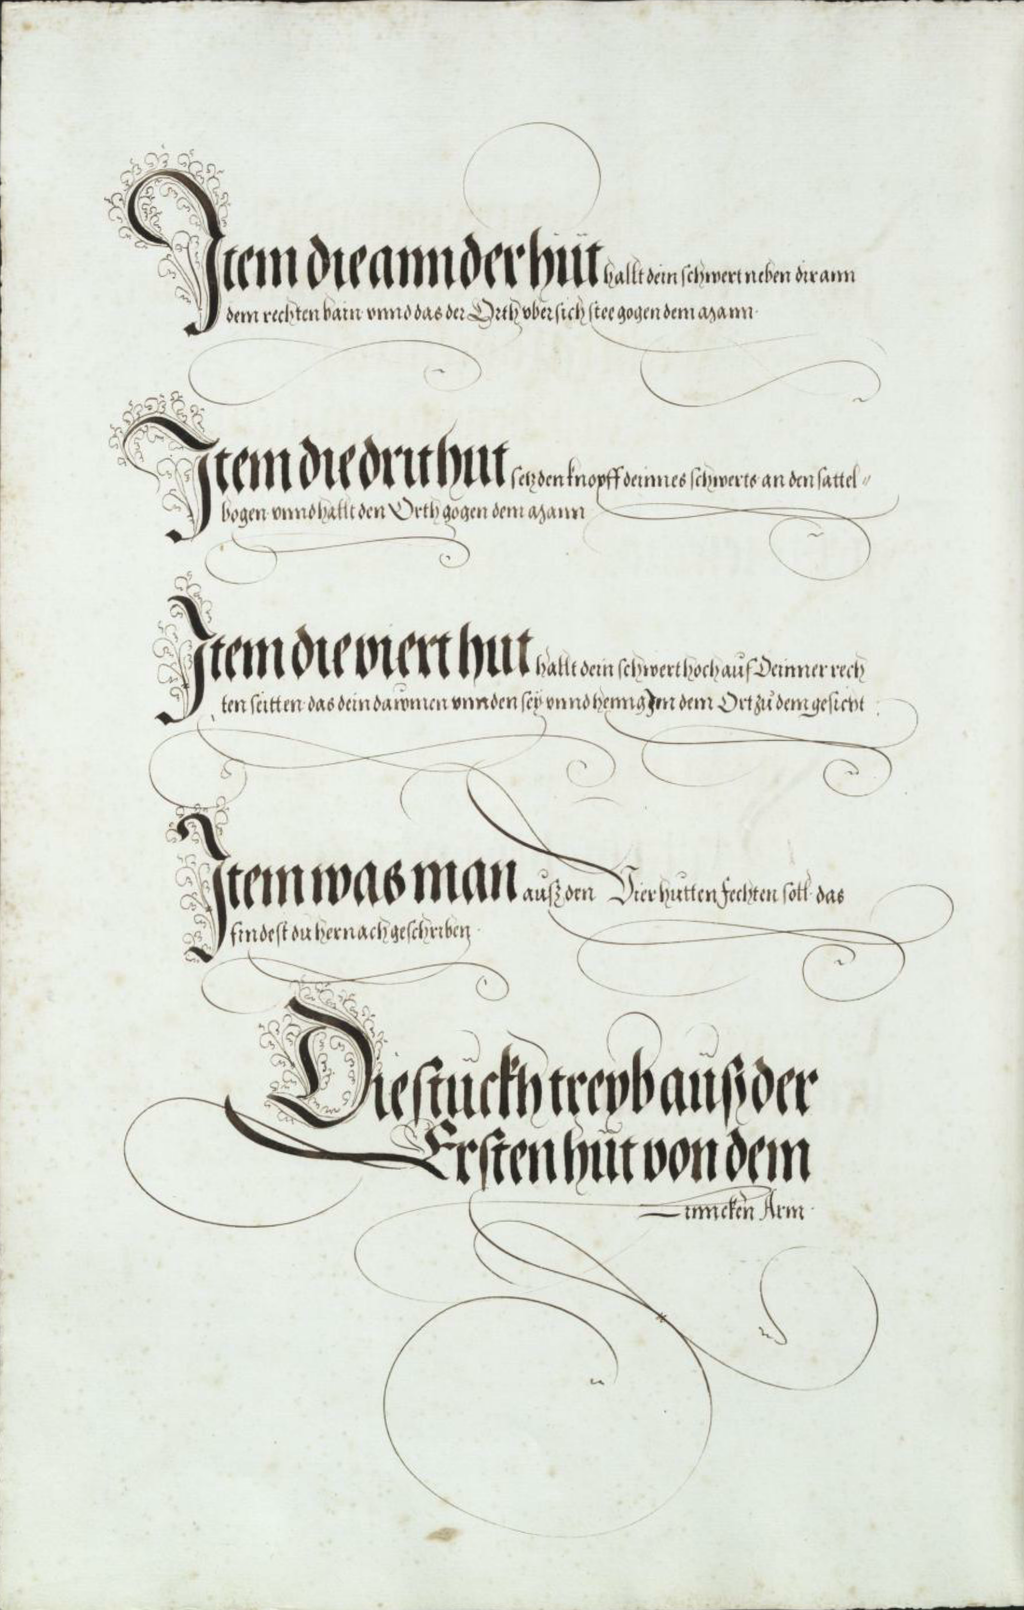 Item die annder hüt hallt dein schwert neben dir ann
dem rechten bain vnnd das der Orth vber sich stee gogen dem Mann.
Item die drit hut setz den knopff deinnes schwerts an den sattel=
bogen vnnd hallt den Orth gogen dem Mann
Item die viert hut hallt dein schwert hoch auf Deinner rech
ten seitten das dein dawmen vnnden sey vnnd henng Im dem Ort zü dem gesicht
Item was man auß den Vier hutten fechten soll das
findest du hernach geschriben.
Die stückh treyb auß der
Ersten hüt von dem
Linncken Arm.